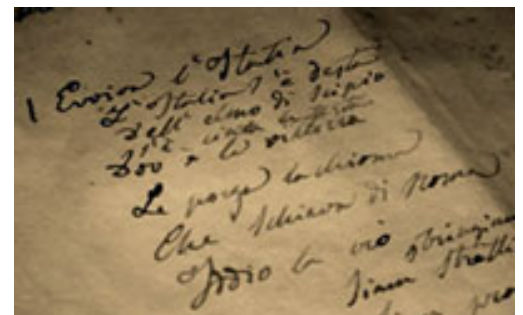 Evviva l'Italia
L'Italia s'è desta
Dell' elmo di Scipio
S'è cinta la testa
Dov' è la vittoria
Le porga la chioma
Che schiava di Roma
Iddio la creò